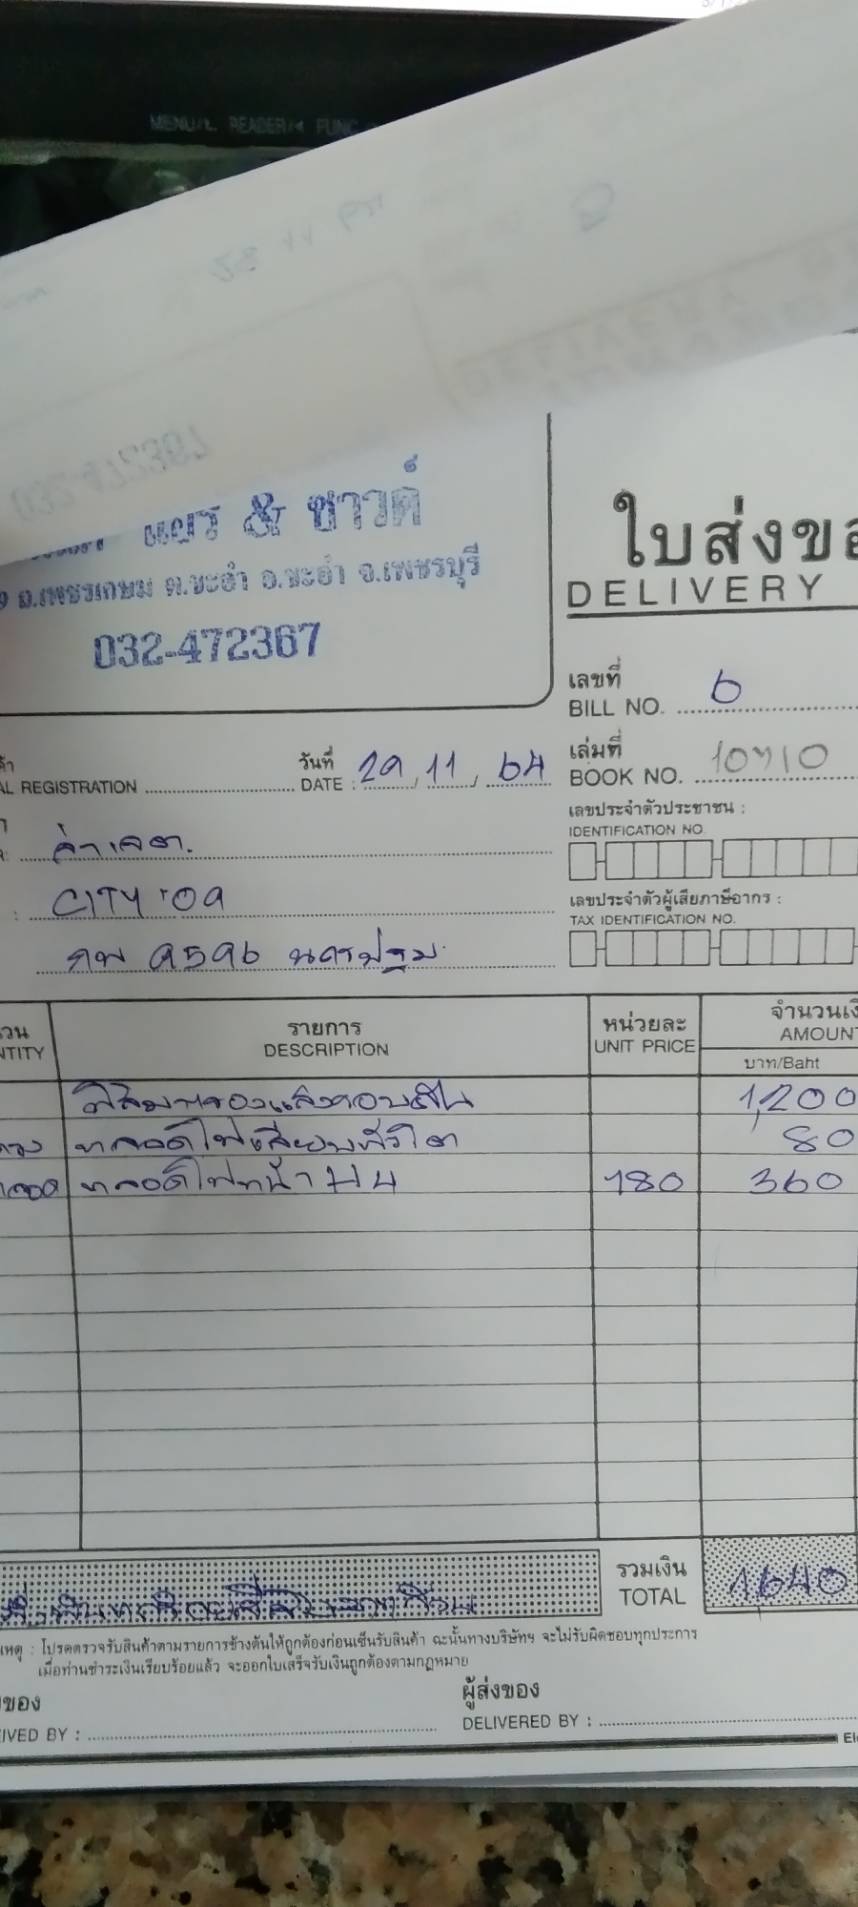 MENU/ READER/ FUNC
& ซาวด์
อ.เพชรเกษม ต.ชะอำ อ.ชะอำ จ.เพชรบุรี
032-472367
ใบส่งขอ
DELIVERY
เลขที่
BILL NO. 6
วันที่
DATE : 29, 11, 64
เล่มที่
BOOK NO.
AL REGISTRATION
เลขประจำตัวประชาชน :
IDENTIFICATION NO.
CITY '09
9596 นครปฐม
เลขประจำตัวผู้เสียภาษีอากร :
TAX IDENTIFICATION NO.
วน
NTITY
รายการ
DESCRIPTION
หน่วยละ
UNIT PRICE
จำนวนเงิ
AMOUNT
บาท/Baht
ฟิล์มกรองแสงรอบคัน 1,200
ดวง หลอดไฟเสียบ 80
หลอด หลอดไฟหน้า H4 180 360
หนึ่งพันหกร้อยสี่สิบบาทถ้วน
รวมเงิน
TOTAL 1,640
เหตุ : โปรดตรวจรับสินค้าตามรายการข้างต้นให้ถูกต้องก่อนเซ็นรับสินค้า ฉะนั้นทางบริษัทฯ จะไม่รับผิดชอบทุกประการ
เมื่อท่านชำระเงินเรียบร้อยแล้ว จะออกใบเสร็จรับเงินถูกต้องตามกฎหมาย
ของ
IVED BY :
ผู้ส่งของ
DELIVERED BY :